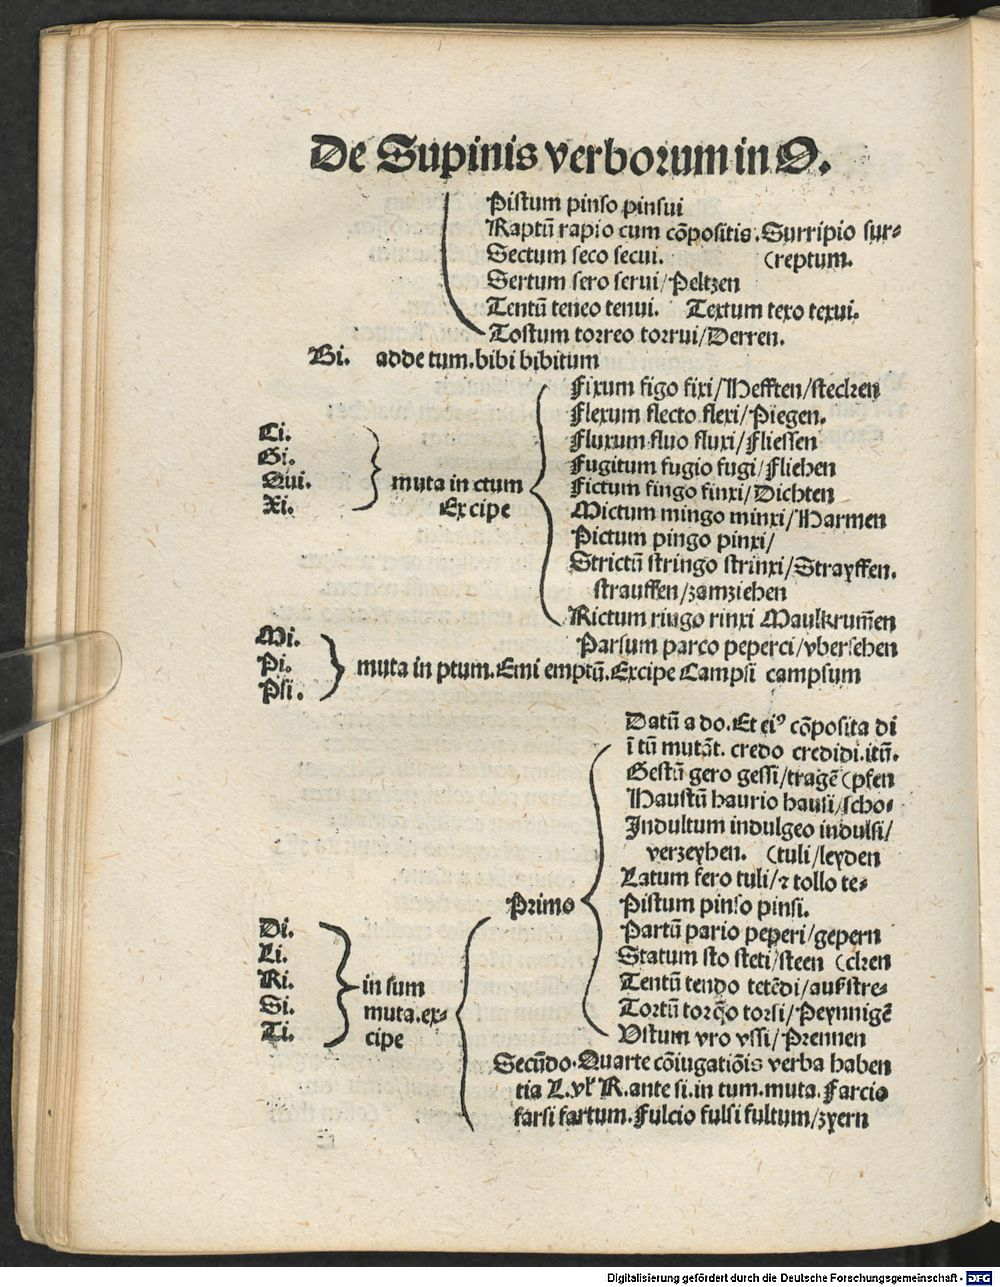 De Supinis verborum in O.
Pistum pinso pinsui
Raptū rapio cum cōpositis. Surripio sur⸗
Sectum seco secui. (reptum.
Sertum sero serui/Peltzen
Tentū teneo tenui. Textum texo texui.
Tostum torreo torrui/Derren.
Bi. adde tum. bibi bibitum
Ci.
Gi.
Qui.
Xi.
muta in ctum
Excipe
Fixum figo fixi/Hefften/stecken
Flexum flecto flexi/Piegen.
Fluxum fluo fluxi/Fliessen
Fugitum fugio fugi/Fliehen
Fictum fingo finxi/Dichten
Mictum mingo minxi/Harmen
Pictum pingo pinxi/
Strictū stringo strinxi/Strayffen.
strauffen/zamziehen
Rictum ringo rinxi Maulkrum̄en
Parsum parco peperci/vbersehen
Mi.
Pi.
Psi.
muta in ptum. Emi emptū. Excipe Campsi campsum
Di.
Li.
Ri.
Si.
Ti.
in sum
muta. ex⸗
cipe
Primo
Datū a do. Et eiꝰ cōposita di
ī tū mutāt. credo credidi. itū.
Gestū gero gessi/tragē (pfen
Haustū haurio hausi/scho⸗
Indultum indulgeo indulsi/
verzeyhen. (tuli/leyden
Latum fero tuli/⁊ tollo te⸗
Pistum pinso pinsi.
Partū pario peperi/gepern
Statum sto steti/steen (cken
Tentū tendo tetēdi/aufstre⸗
Tortū torq̄o torsi/Peynnigē
Vstum vro vssi/Prennen
Secūdo. Quarte cōiugatiōis verba haben
tia L. vł R. ante si. in tum. muta. Farcio
farsi fartum. Fulcio fulsi fultum/zyern
Digitalisierung gefördert durch die Deutsche Forschungsgemeinschaft - DFG